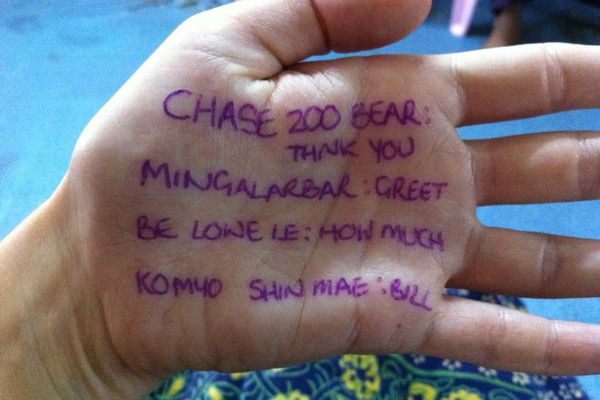 CHASE ZOO BEAR:
THNK YOU
MINGALARBAR: GREET
BE LOWE LE: HOW MUCH
KOMYO SHIN MAE: BILL